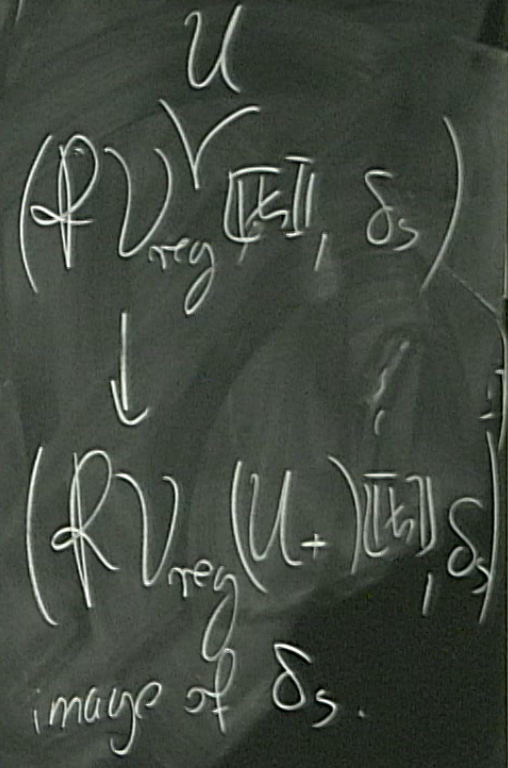 U
(RV_reg^∨ [[ℏ]], δ_s)
↓
(RV_reg(U_+)[[ℏ]], δ_s)
image of δ_s.